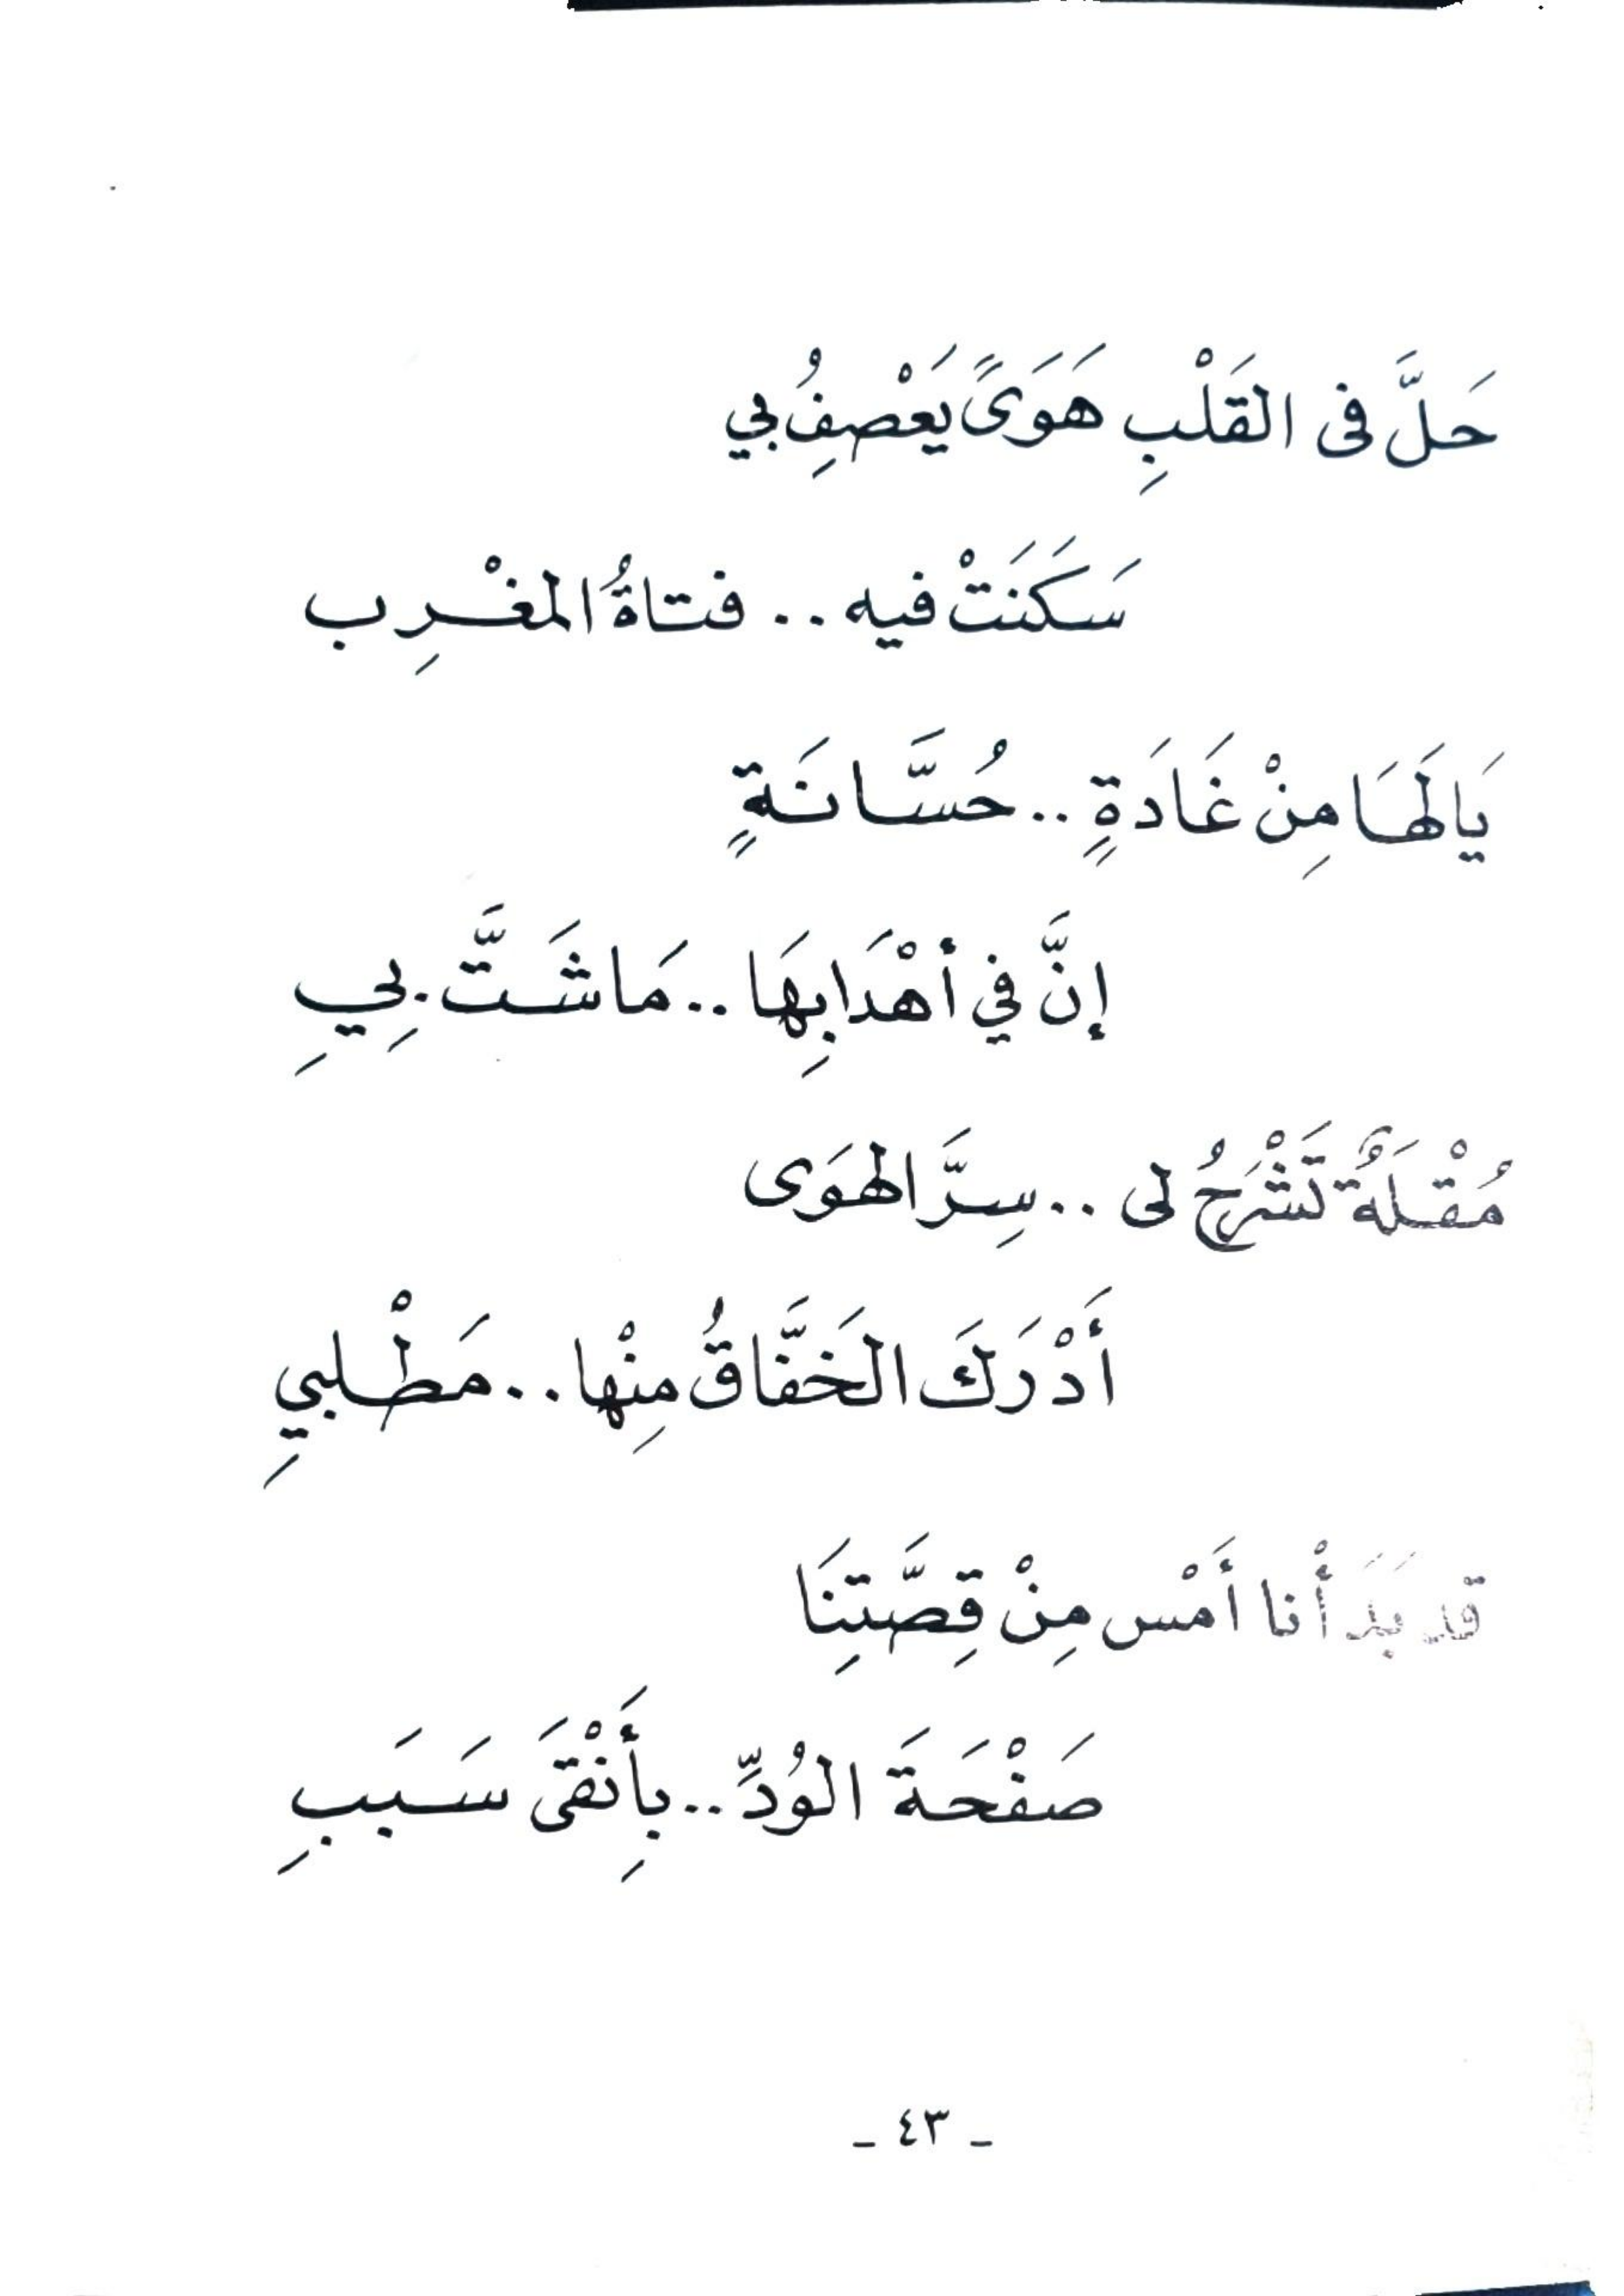 حَلَّ فى القَلْبِ هَوَىً يَعْصِفُ بي
سَكَنَتْ فيه .. فتاةُ المغْرِب
يَا لَهَا مِنْ غَادَةٍ .. حُسَّانَةٍ
إنَّ في أهْدَابِهَا .. مَا شَتَّ .بِيِ
مُقْلَةٌ تَشْرَحُ لى .. سِرَّ الهوَى
أَدْرَكَ الخَفَّاقُ مِنْها .. مَطْلبيِ
قد بَدَأْنا أَمْس مِنْ قِصَّتِنَا
صَفْحَةَ الوُدِّ .. بِأَنْقَى سَبَبِ
ـ ٤٣ ـ